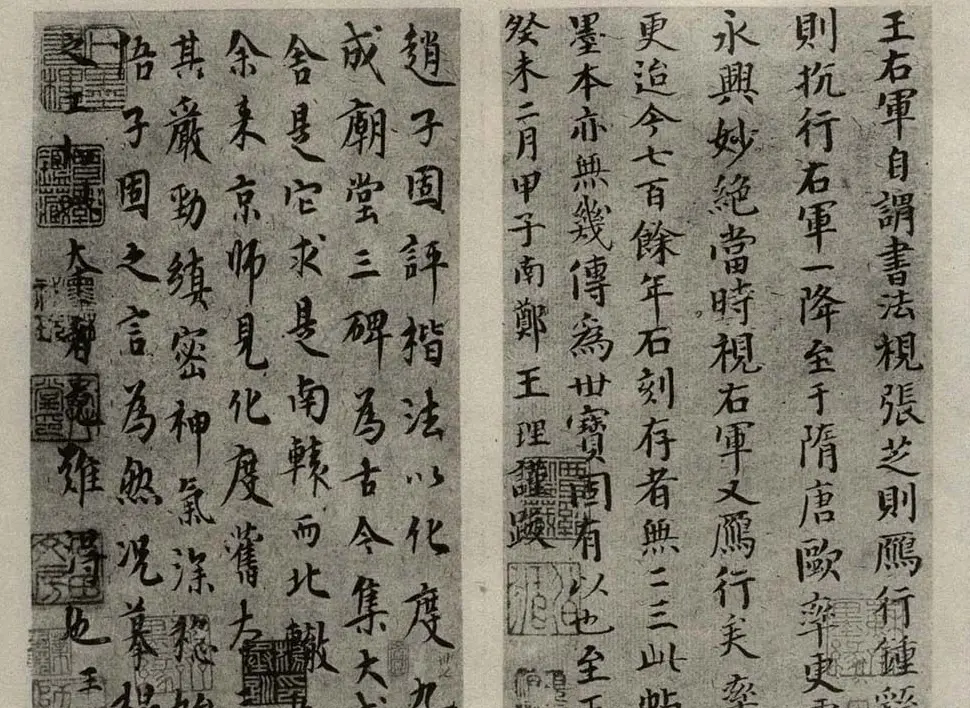 王右軍自謂書法視張芝則鴈行鍾繇
則抗行右軍一降至于隋唐歐率更
永興妙絕當時視右軍又鴈行矣率
更迨今七百餘年石刻存者無二三此帖
墨本亦無幾傳為世寶固有以也至
癸未二月甲子南鄭王理謹跋
趙子固評楷法以化度九
成廟堂三碑為古今集大成
舍是它求是南轅而北轍
余來京師見化度舊
其嚴勁縝密神氣深穩
悟子固之言為然況摹搨
之工
大
難得也王